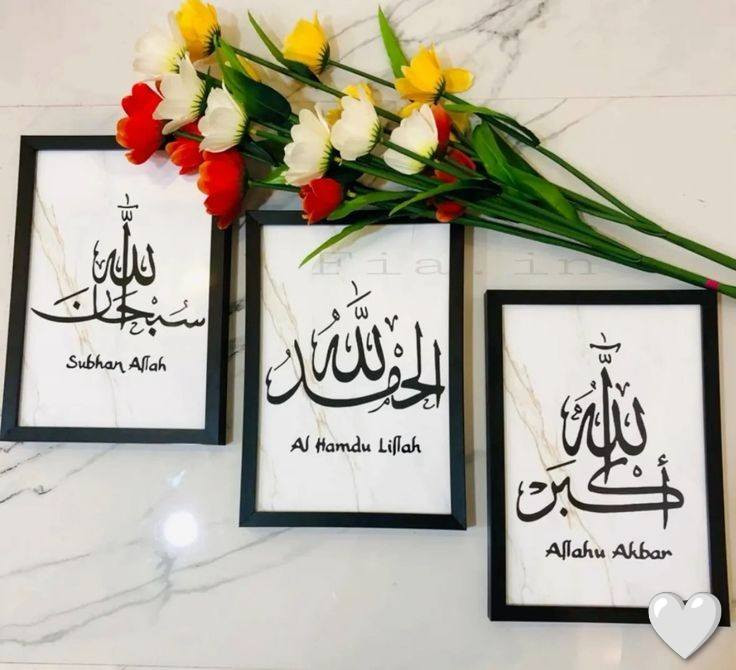 سبحان الله
Subhan Allah
الحمد لله
Al Hamdu Lillah
الله أكبر
Allahu Akbar
Fia.in